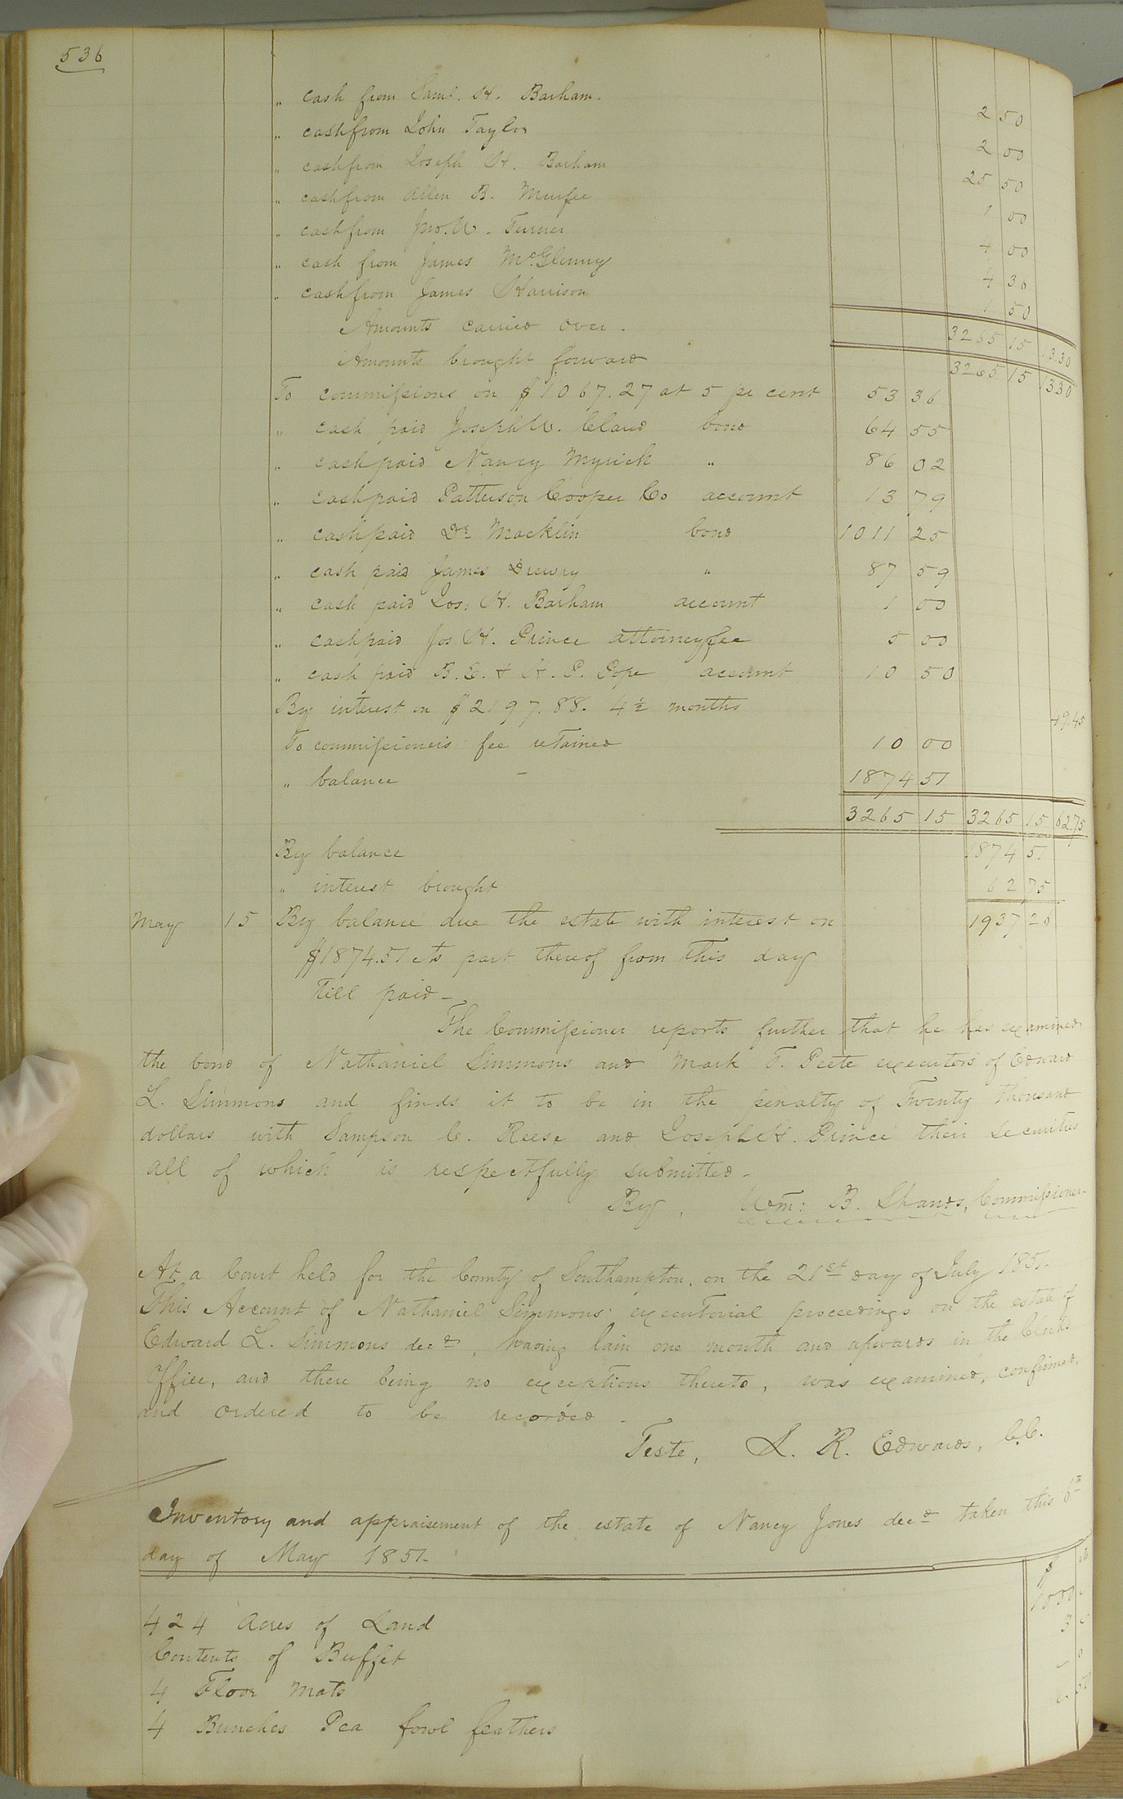 536
" cash from Saml. H. Barham. 2 50
" cash from John Taylor 2 00
" cash from Joseph H. Barham 25 50
" cash from Allen B. Murfee 1 00
" cash from Jno. W. Turner 4 00
" cash from James McGlenny 4 30
" cash from James Harrison 1 50
Amounts carried over. 3265 15 13.30
Amounts brought forward 3265 15 1330
To commissions on $1067.27 at 5 per cent 53 36
" cash paid Joseph W. Claud bond 64 55
" cash paid Nancy Myrick " 86 02
" cash paid Patterson Cooper Co account 13 79
" cash paid Dr. Macklin bond 1011 25
" cash paid James Drewry " 87 59
" cash paid Jos. H. Barham account 1 00
" cash paid Jos. H. Prince attorney fee 5 00
" cash paid B. E. & H. P. Pope account 10 50
By interest on $2197.88. 4½ months 49.45
To commissioners fee retained 10 00
" balance - 1874 51
3265 15 3265 15 62.75
By balance 1874 51
" interest brought 62 75
May 15 By balance due the estate with interest on 1937 26
$1874.51 cts part thereof from this day
till paid -
The Commissioner reports further that he has examined
the bond of Nathaniel Simmons and Mark F. Peete executors of Edward
L. Simmons and finds it to be in the penalty of Twenty thousand
dollars with Sampson C. Reese and Joseph H. Prince their securities
all of which is respectfully submitted -
By, Wm: B. Shands, Commissioner.
At a Court held for the County of Southampton, on the 21st day of July 1851.
This Account of Nathaniel Simmons' executorial proceedings on the estate of
Edward L. Simmons decd, having lain one month and upwards in the Clerks
Office, and there being no exceptions thereto, was examined, confirmed,
and ordered to be recorded.
Teste, L. R. Edwards, C.C.
Inventory and appraisement of the estate of Nancy Jones decd taken this 6th
day of May 1851.
$
424 Acres of Land
Contents of Buffet 3
4 Floor Mats
4 Bunches Pea fowl feathers